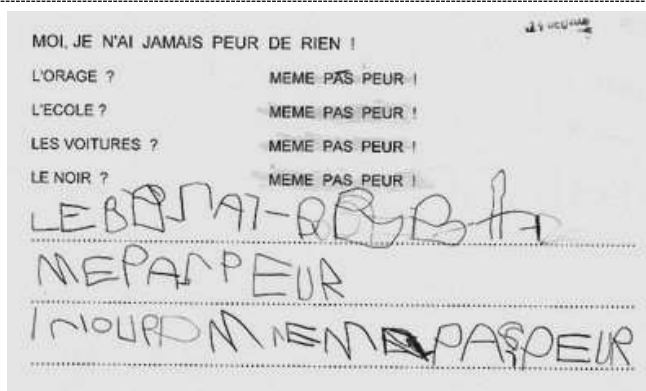 MOI, JE N'AI JAMAIS PEUR DE RIEN !
L'ORAGE ? MEME PAS PEUR !
L'ECOLE ? MEME PAS PEUR !
LES VOITURES ? MEME PAS PEUR !
LE NOIR ? MEME PAS PEUR !
MEPASPEUR
PASPEUR